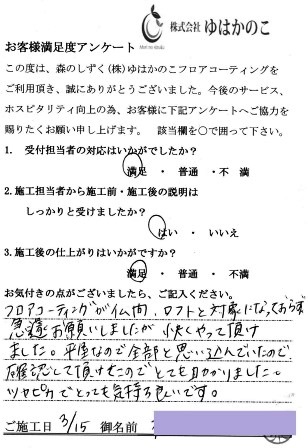 株式会社 ゆはかのこ
お客様満足度アンケート
この度は、森のしずく(株)ゆはかのこフロアコーティングを
ご利用頂き、誠にありがとうございました。今後のサービス、
ホスピタリティ向上の為、お客様に下記アンケートへご協力を
賜りたくお願い申し上げます。 該当欄を○で囲って下さい。
1. 受付担当者の対応はいかがでしたか?
満足 ・ 普通 ・ 不 満
2. 施工担当者から施工前・施工後の説明は
しっかりと受けましたか?
はい ・ いいえ
3. 施工後の仕上がりはいかがですか?
満足 ・ 普通 ・ 不 満
お気付きの点がございましたら、ご記入ください。
フロアコーティングが仏間、ロフトと対象になっておらず
急遽お願いしましたが快くやって頂け
ました。平屋なので全部と思い込んでいたので
確認して頂けたのでとても助かりました。
ツヤピカでとっても気持ち良いです。
ご施工日 3/15 御名前